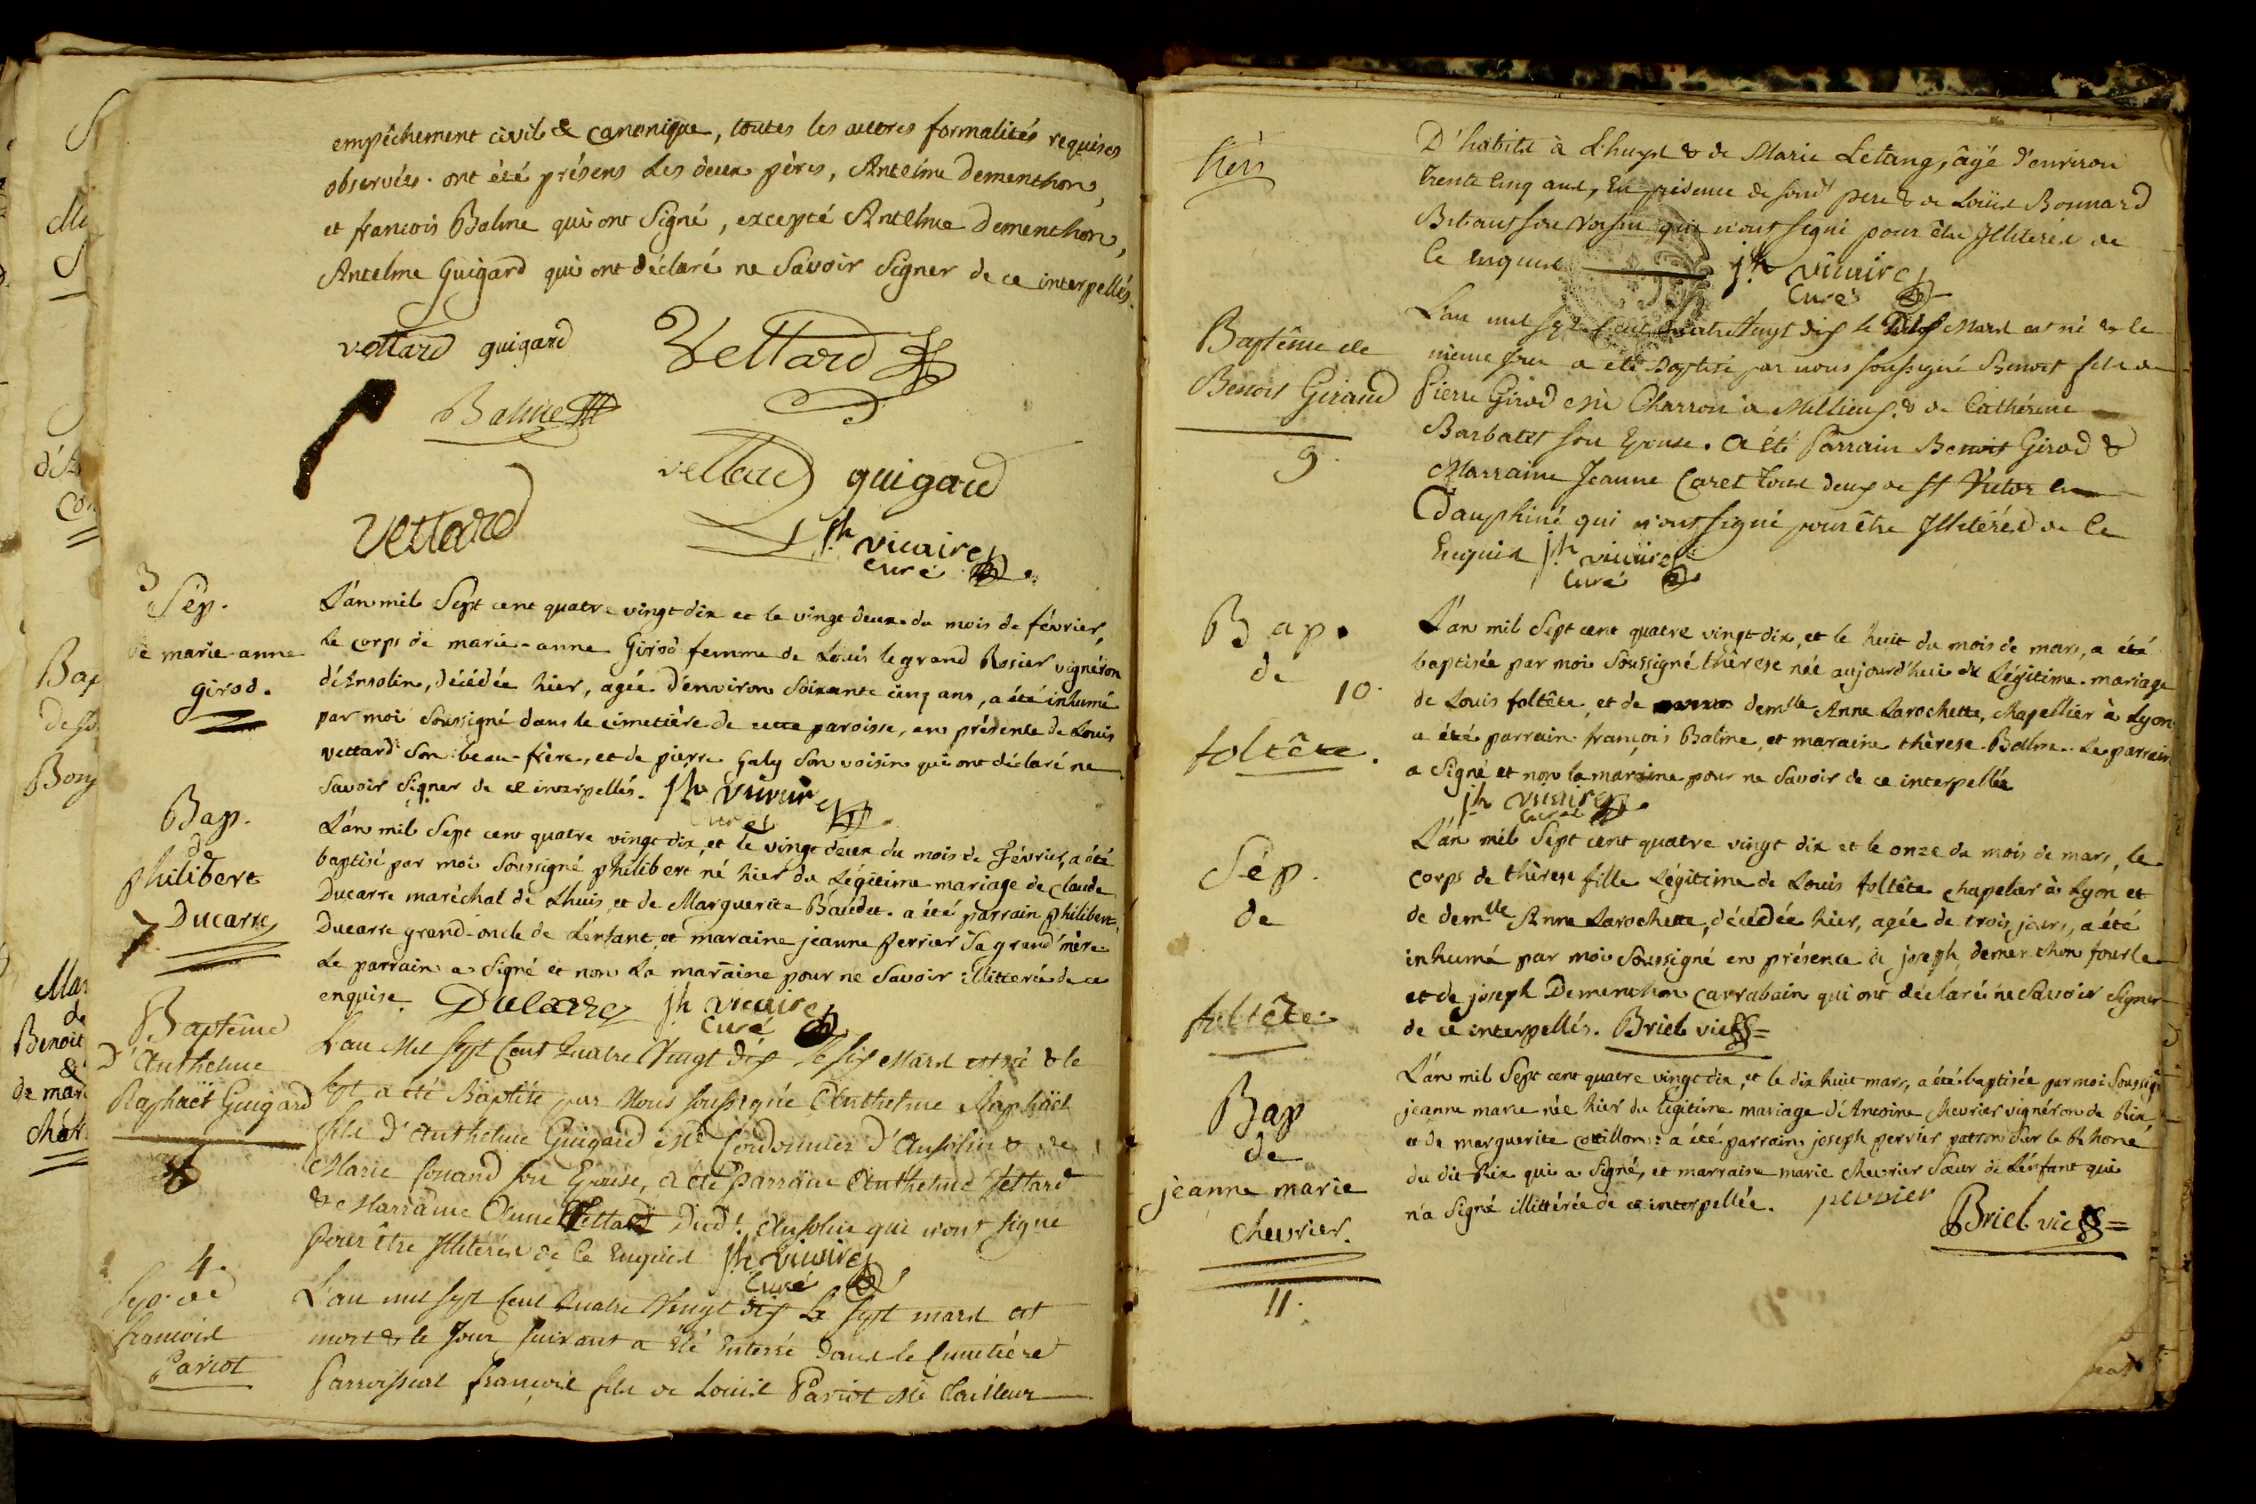 empêchement civil & canonique, toutes les autres formalités requises
observées. ont été présens les deux pères, Antelme Dementhon,
et francois Balme qui ont Signé, excepté Antelme Dementhon,
Antelme Guigard qui ont déclaré ne Savoir Signer de ce interpellés.
vettard guigard Vettard
Balme
vettard guigard
Vettard
jh vicaire
curé
3
Sép.
de marie-anne
girod.
L'an mil Sept cent quatre vingt dix et le vingt deux du mois de février,
le corps de marie-anne Girod femme de Louis le grand Rosier vignéron
d'Ansolin, décédée hier, agée d'environ Soixante cinq ans, a été inhumé
par moi Soussigné dans le cimetière de cette paroisse, en présente de Louis
vettard Son beau-frère, et de pierre Galy Son voisin qui ont déclaré ne
Savoir Signer de ce interpellés. jh vicaire
curé
Bap.
de
philibert
Ducarre
7
L'an mil Sept cent quatre vingt dix, et le vingt deux du mois de février, a été
baptisé par moi Soussigné philibert né hier du Légitime mariage de Claude
Ducarre maréchal de Lhuis, et de Marguerite Baudet. a été parrain philibert
Ducarre grand-oncle de L'enfant, et maraine jeanne perrier Sa grand'mère
Le parrain a Signé et non La maraine pour ne Savoir illitterée de ce
enquise. Ducarre jh vicaire
curé
Baptême
D'Anthelme
Raphaël Guigard
L'an Mil sept Cent Quatre Vingt dix le six Mars est né & le
sept a été Baptisé par Nous soussigné Anthelme Raphaël
fils d'Anthelme Guigard Me Cordonnier d'Ansolin & de
Marie son Epouse, a été Parrain Anthelme Vettard
& Marraine Anne Vettard Dud. Ansolin qui n'ont signé
pour être Illiterés de Ce Enquis jh vicaire
curé
4.
Sep. de
francois
Pariot
L'an mil sept Cent Quatre Vingt dix Le sept mars est
mort & le Jour suivant a été Enterré dans le Cimetière
Parroissial François fils de Louis Pariot Me Tailleur
D'habits à Lhuys & de Marie Letang, âgé d'environ
trente Cinq ans, En présence de sond pere & de Louis Bonnard
son Voisin qui n'ont signé pour être Illiterés de
Ce Enquis jh vicaire
Curé
Baptême de
Benoit Giraud
9.
L'an mil sept Cent Quatre Vingt dix le Mars est né & le
même jour a été Baptisé par nous soussigné Benoit fils de
Pierre Girod Me Charron à Millieux & de Cathérine
Barbatet son Epouse. A été Parrain Benoit Girod &
Marraine Jeanne Caret Tous deux de St Victor en
Dauphiné qui n'ont signé pour être Illitérés de Ce
Enquis jh vicaire
Curé
Bap.
de
10.
foltête.
L'an mil Sept cent quatre vingt dix, et le huit du mois de mars, a été
baptisée par moi Soussigné thèrese née aujourd'hui du Légitime mariage
de Louis foltête, et de demlle Anne Larochette, Chapellier à Lyon
a été parrain françois Balme, et maraine thèrese Balme. Le parrain
a Signé et non la maraine pour ne Savoir de ce interpellée
jh vicaire
curé
Sép.
de
foltête
L'an mil Sept cent quatre vingt dix et le onze du mois de mars, le
corps de thèrese fille Légitime de Louis foltête chapelier à Lyon et
de demlle Anne Larochette, décédée hier, agée de trois jours, a été
inhumé par moi Soussigné en présence de joseph dementhon fourle
et de joseph Dementhon carrabain qui ont déclaré ne Savoir Signer
de ce interpellés. Briel vic
Bap
de
jeanne marie
chevrier.
11.
L'an mil Sept cent quatre vingt dix, et le dix huit mars, a été baptisée par moi Soussigné
jeanne marie née hier du légitime mariage d'Antoine chevrier vignéron de Rix,
et de marguerite cotillon: a été parrain joseph perrier patron Sur le Rhone
du dit Rix qui a Signé, et marraine marie chevrier Soeur de L'enfant qui
n'a Signé illittérée de ce interpellée. perrier
Briel vic